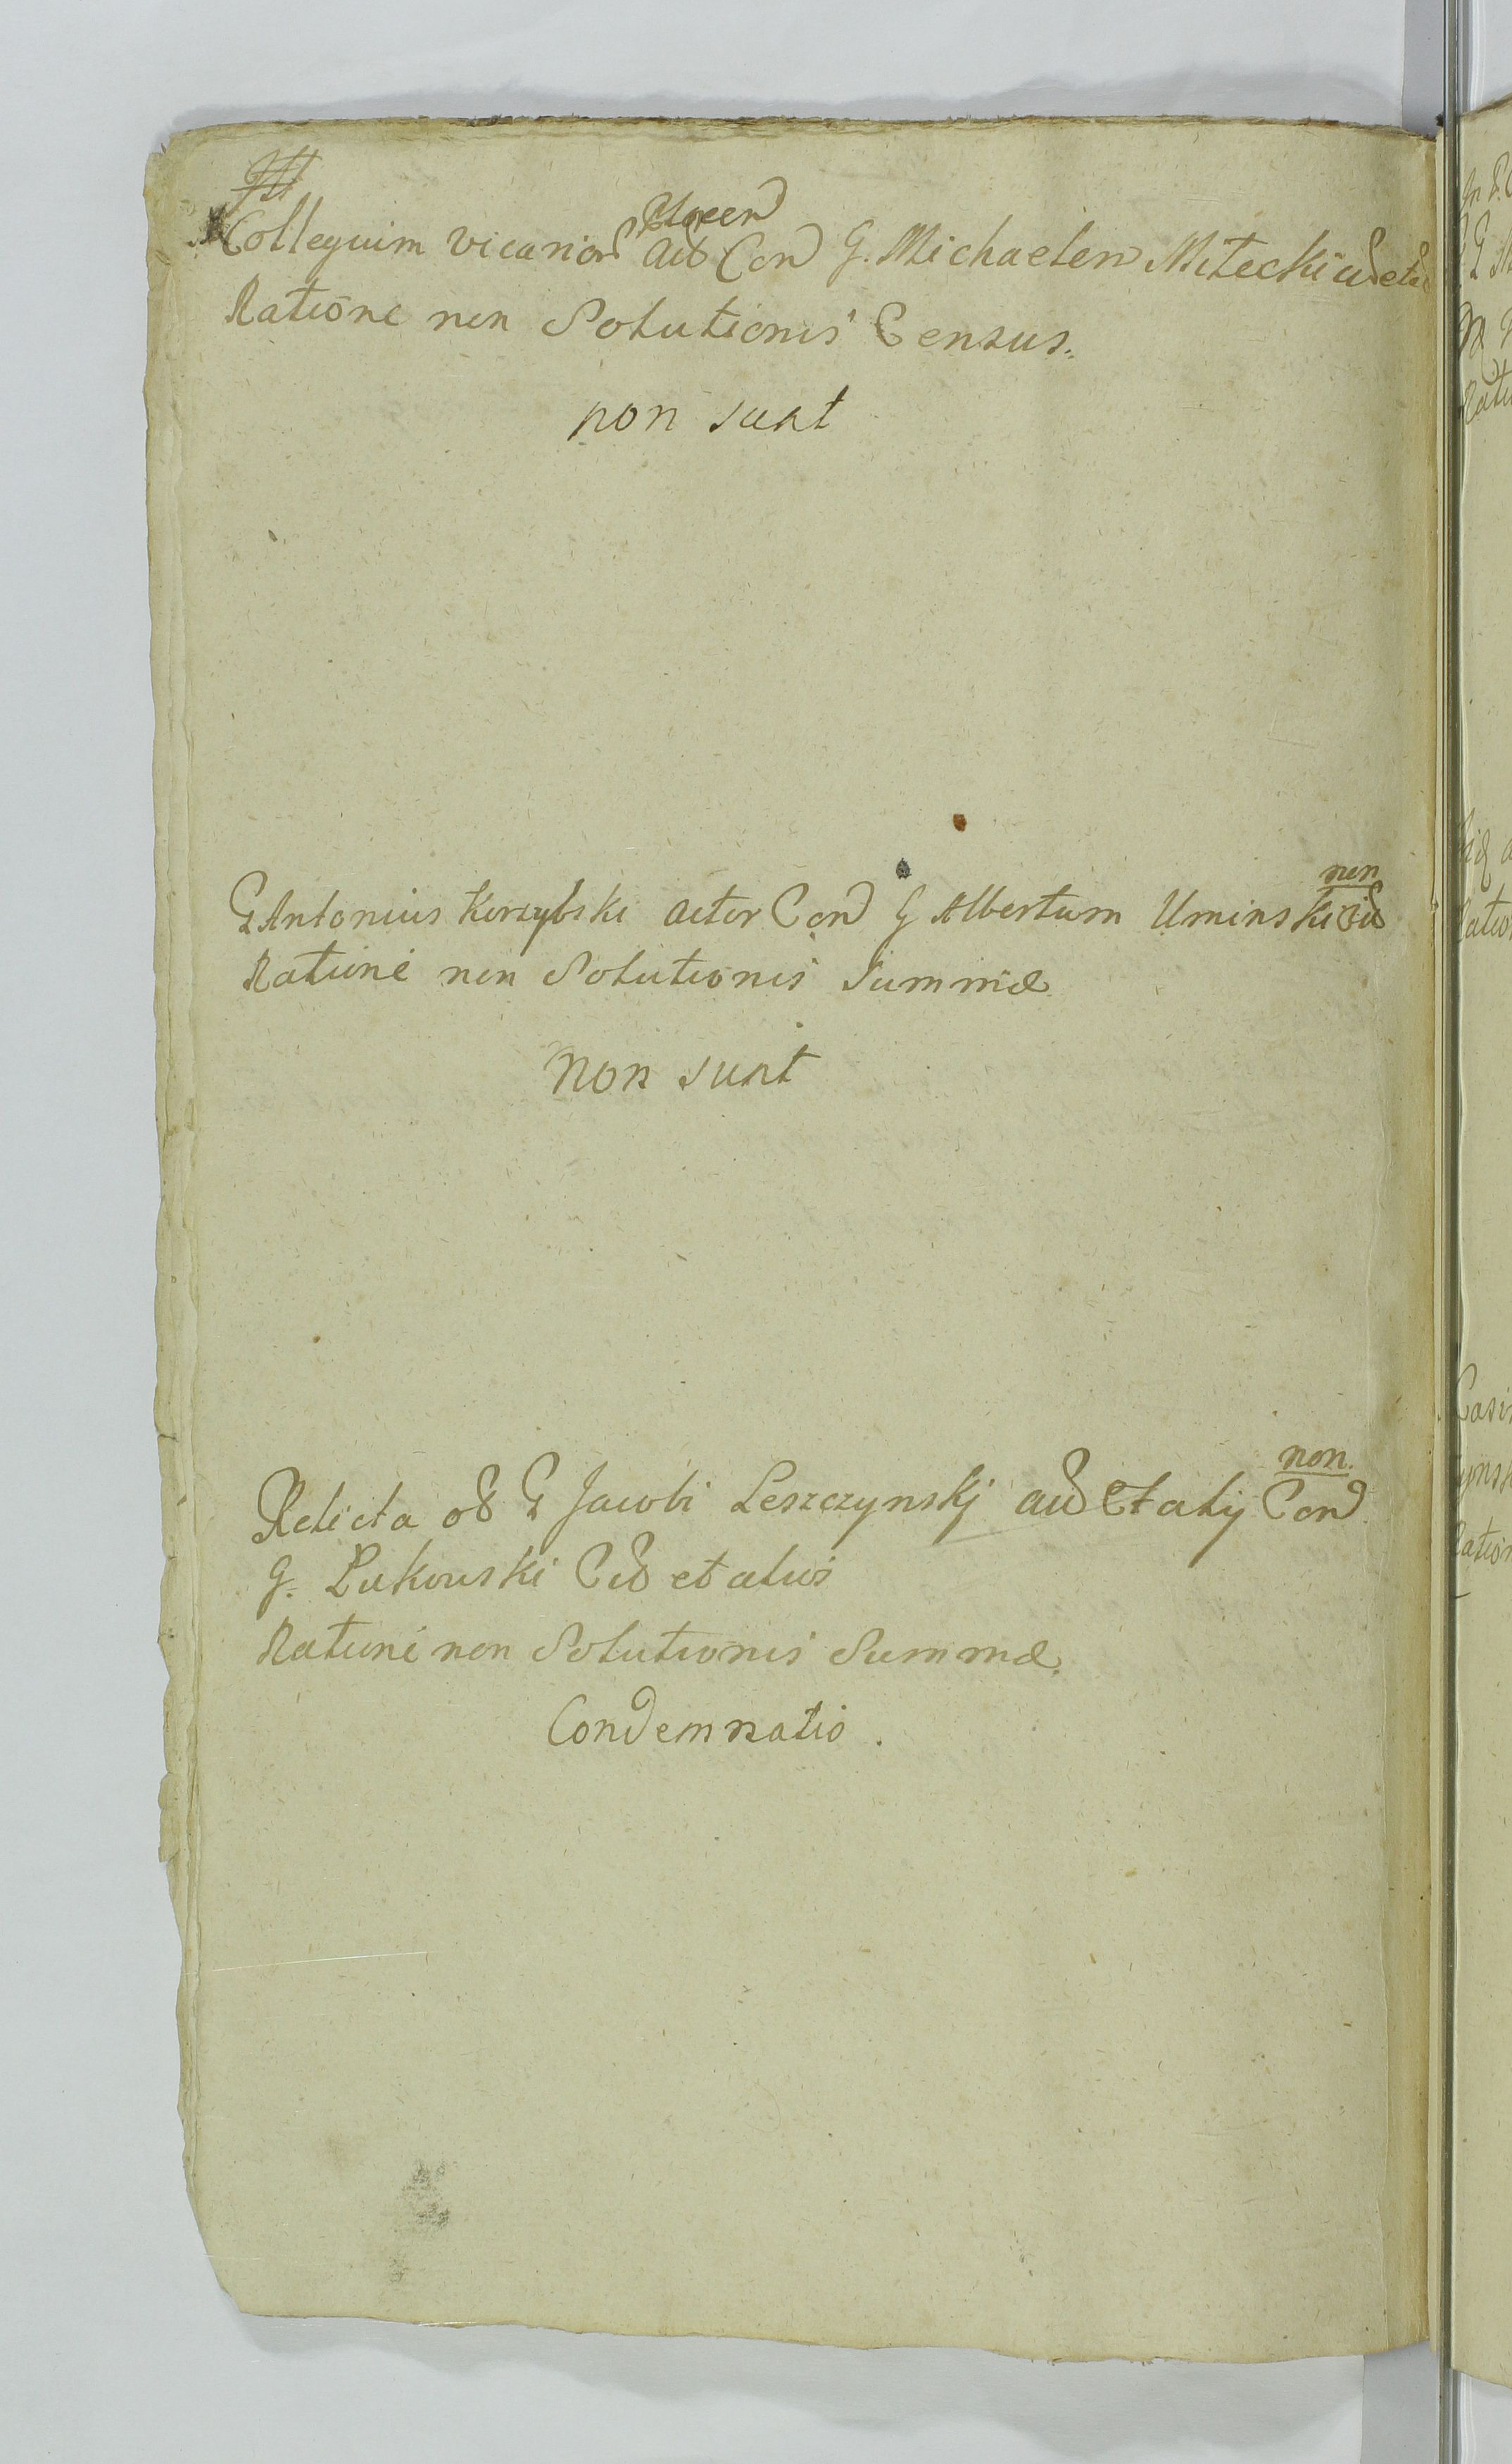 Collegium vicariord Ploceñ acto Con G. Michaelem Miłecki cid et al
Ratione non Solutionis Census.
non sunt
non
G Antonius Korzybski actor Con G Albertum Uminski cid
Ratione non Solutionis Summæ
non sunt
non.
Relicta od G Jacobi Leszczynskj Et alij Con
G. Łukowski Cid et alios
Ratione non Solutionis Summæ.
Condemnatio.